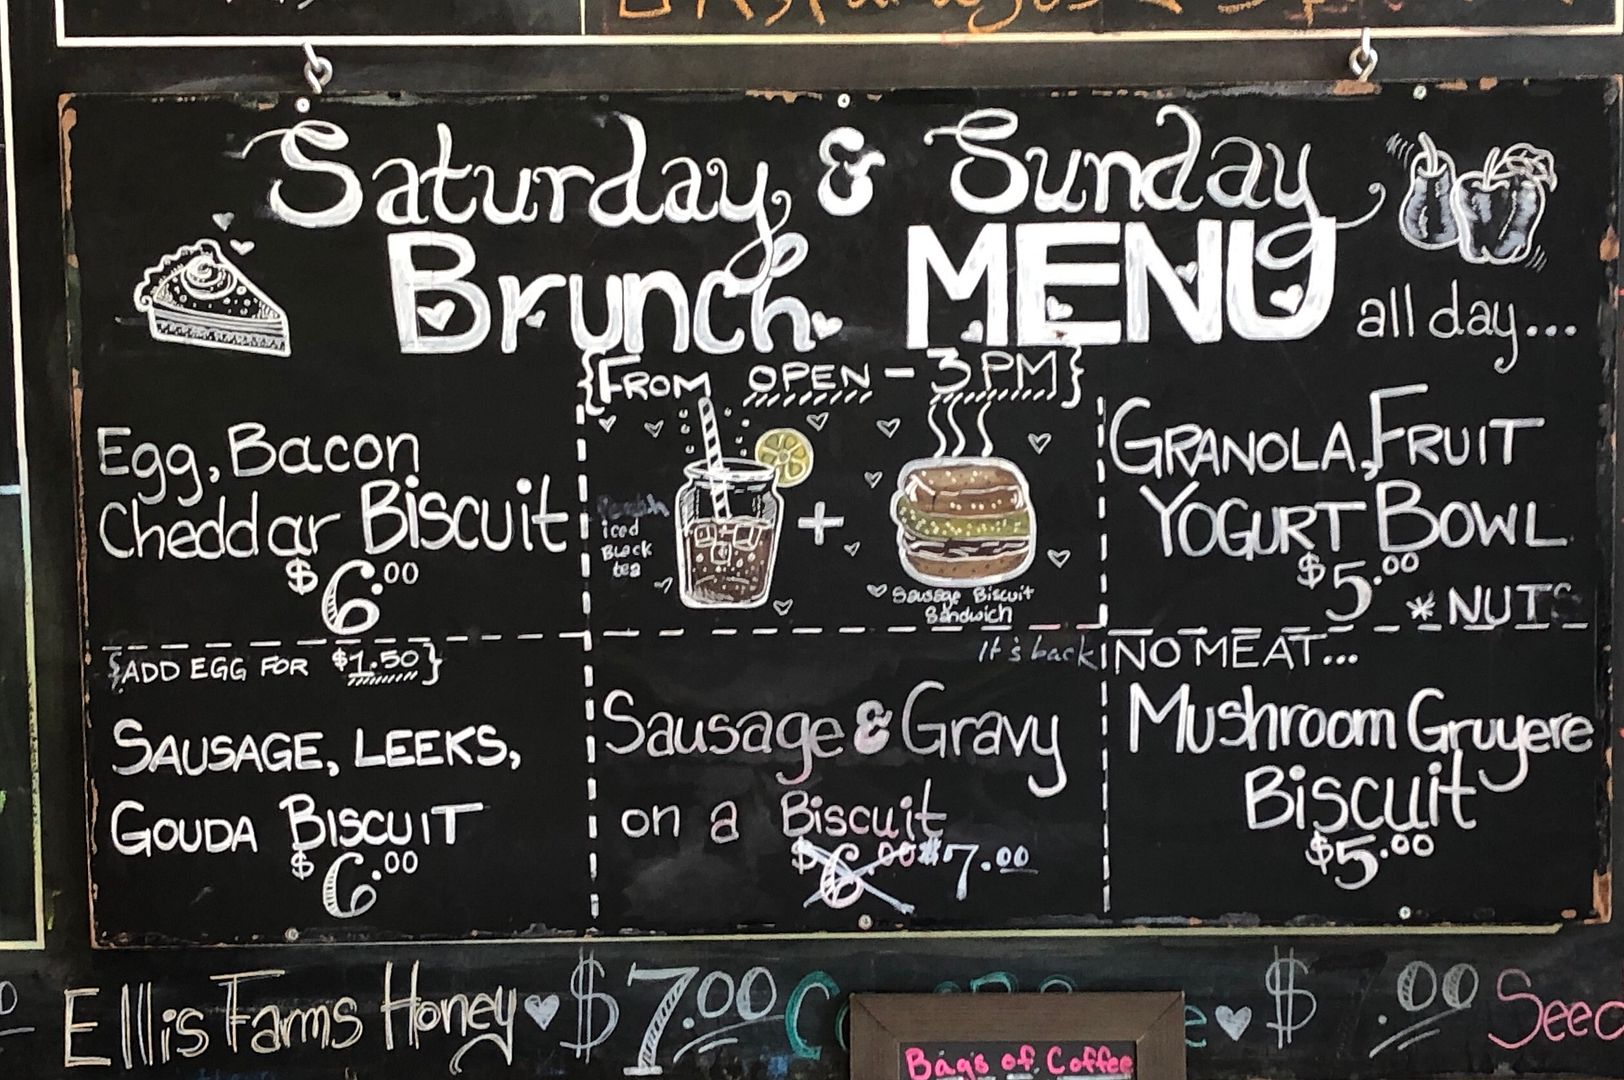 Saturday & Sunday
Brunch MENU
all day...
{FROM OPEN - 3 PM}
Egg, Bacon
Cheddar Biscuit
$6.00
iced
Black
tea
+
Sausage Biscuit
Sandwich
GRANOLA, FRUIT
YOGURT BOWL
$5.00
* NUTS
{ADD EGG FOR $1.50}
SAUSAGE, LEEKS,
GOUDA BISCUIT
$6.00
It's back
Sausage & Gravy
on a Biscuit
$6.00 $7.00
NO MEAT...
Mushroom Gruyere
Biscuit
$5.00
Ellis Farms Honey $7.00
$ .00 Seed
Bags of Coffee